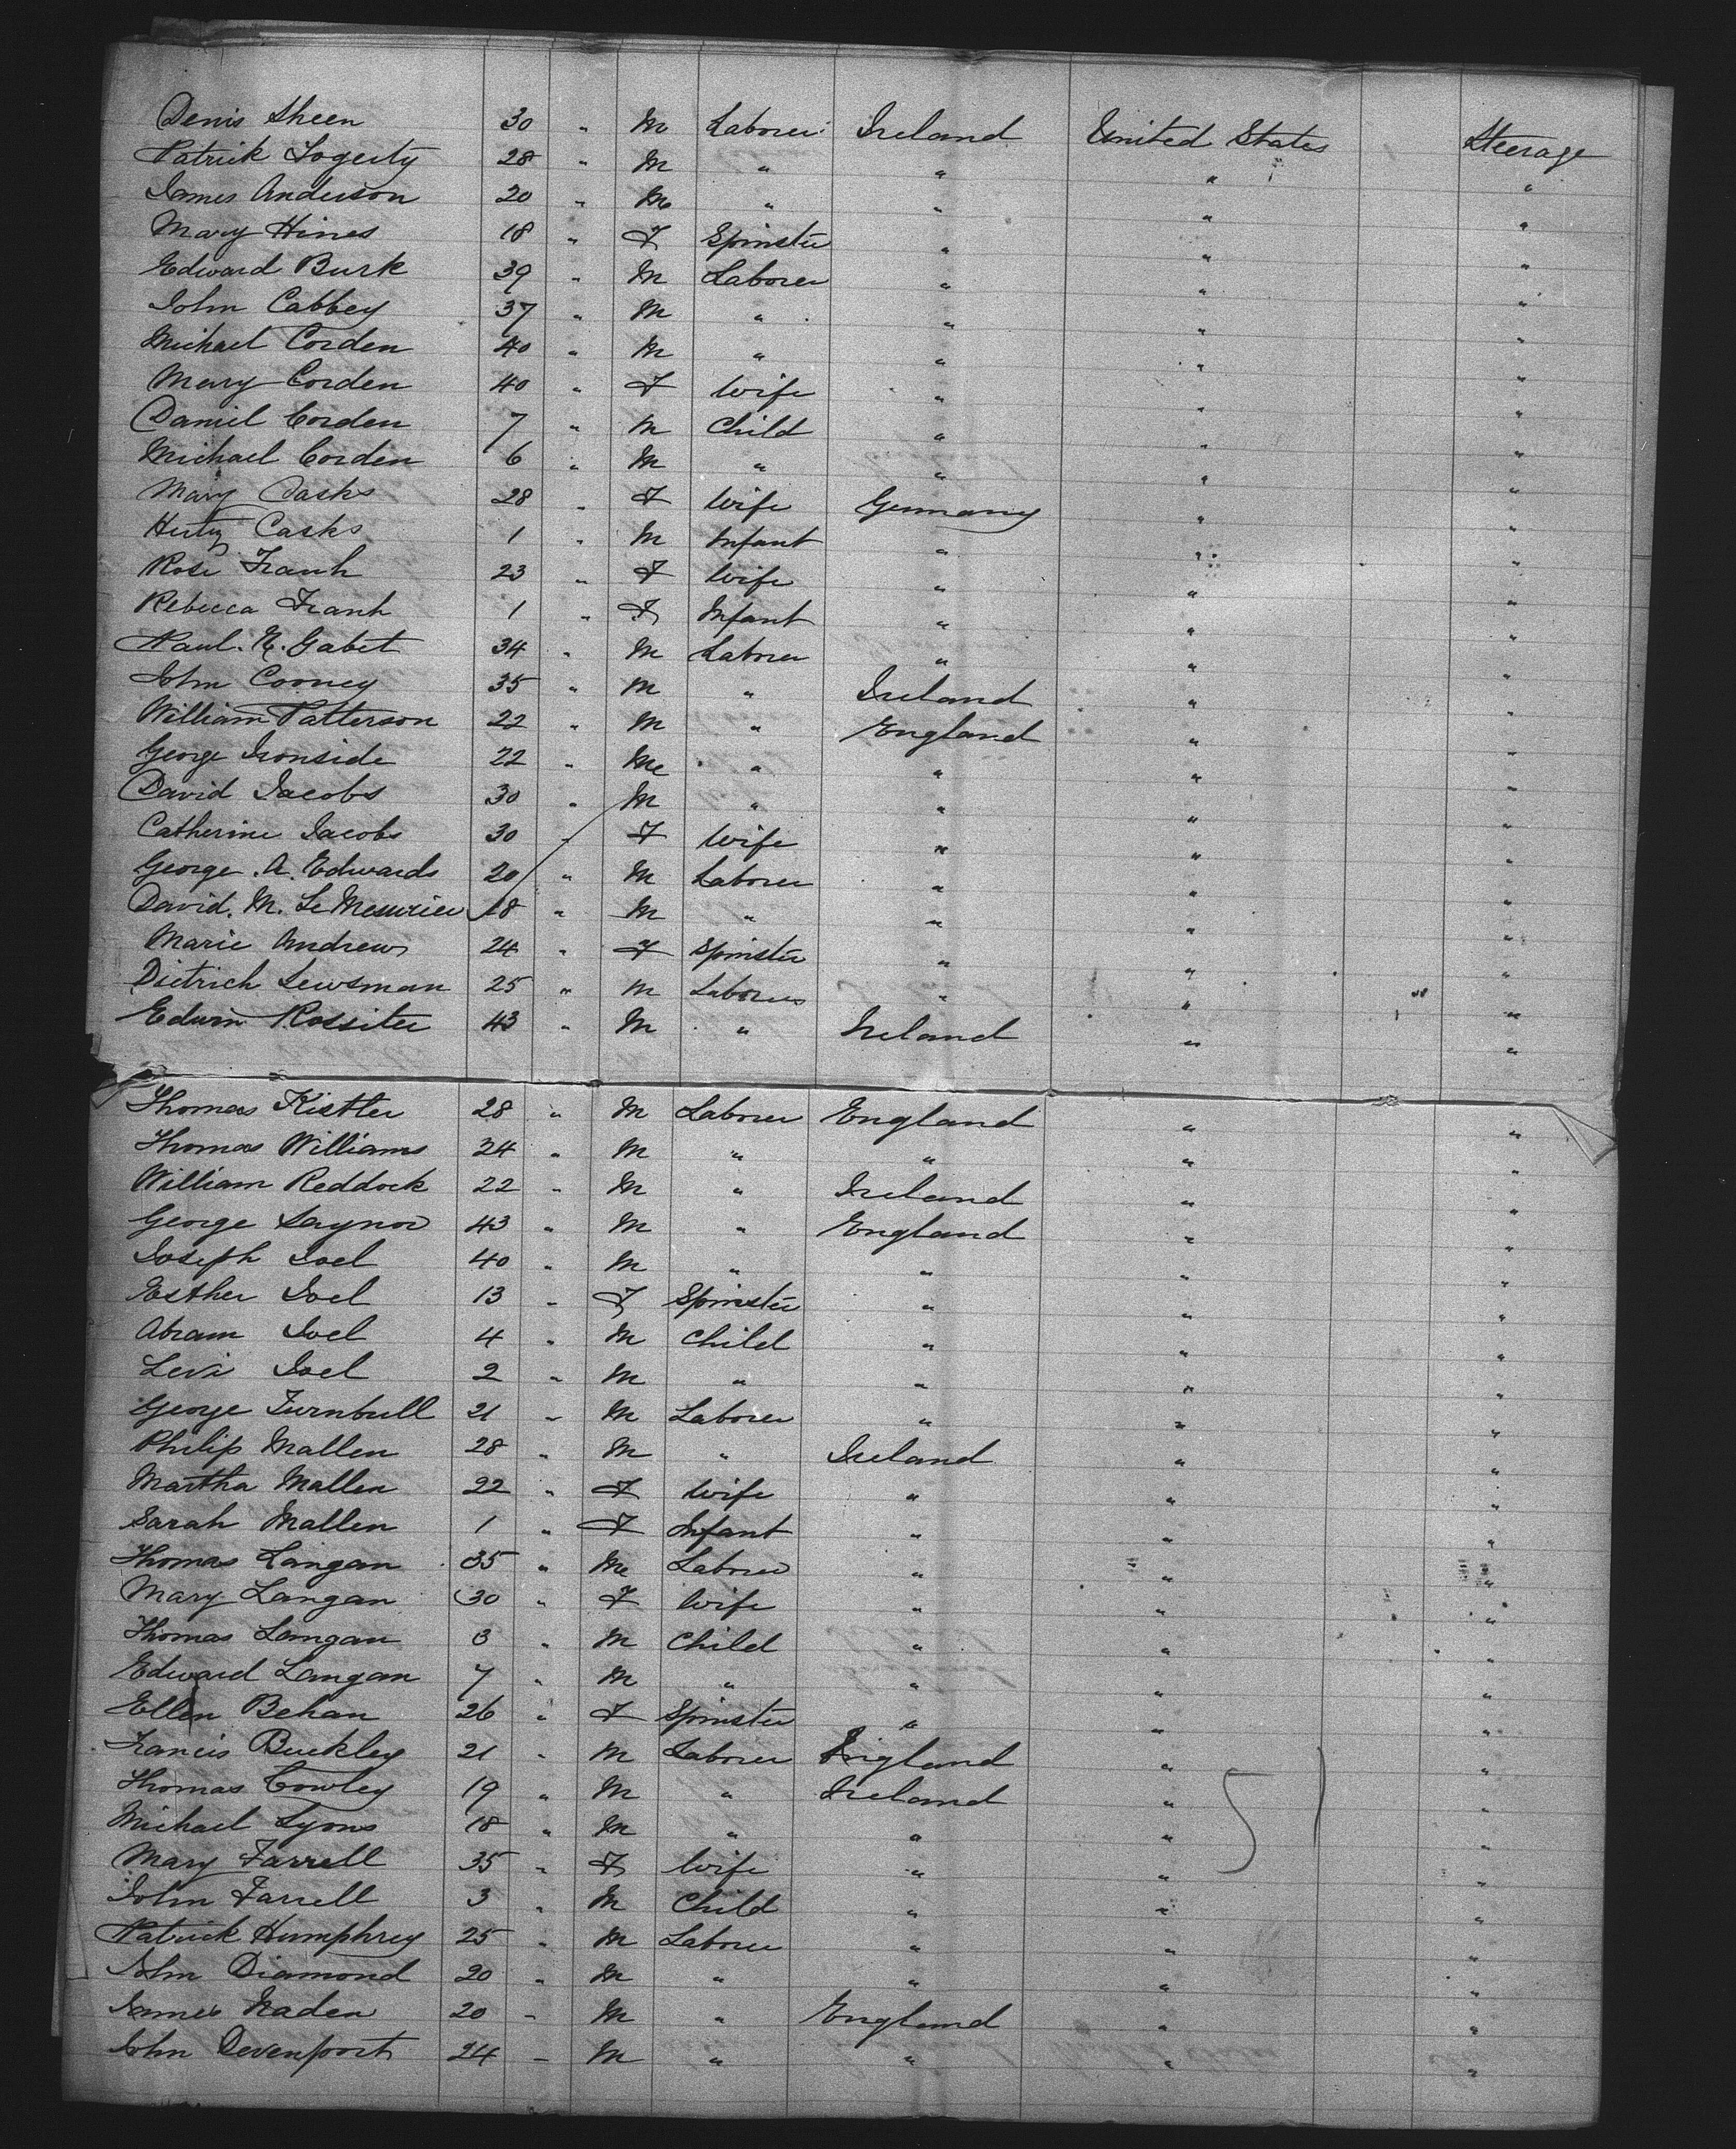 Denis Sheen 30 " M Laborer Ireland United States Steerage
Patrick Fogerty 28 " M " " " "
James Anderson 20 " M " " " "
Mary Hines 18 " F Spinster " " "
Edward Burk 39 " M Laborer " " "
John Cabbey 37 " M " " " "
Michael Corden 40 " M " " " "
Mary Corden 40 " F Wife " " "
Daniel Corden 7 " M Child " " "
Michael Corden 6 " M " " " "
Mary Casks 28 " F Wife Germany " "
Casks 1 " M Infant " " "
Rose Frank 23 " F Wife " " "
Rebecca Frank 1 " F Infant " " "
Paul. E. Gabet 34 " M Laborer " " "
John Cooney 35 " M " Ireland " "
William Patterson 22 " M " England " "
George Ironside 22 " M " " " "
David Jacobs 30 " M " " " "
Catherine Jacobs 30 " F Wife " " "
George. A. Edwards 20 " M Laborer " " "
David. M. Le Mesurier 18 " M " " " "
Marie Andrews 24 " F Spinster " " "
Dietrich Lewsman 25 " M Laborer " " "
Edwin Rossiter 43 " M " Ireland " "
Thomas Kistler 28 " M Laborer England " "
Thomas Williams 24 " M " " " "
William Reddock 22 " M " Ireland " "
George Saynor 43 " M " England " "
Joseph Joel 40 " M " " " "
Esther Joel 13 " F Spinster " " "
Abram Joel 4 " M Child " " "
Levi Joel 2 " M " " " "
George Turnbull 21 " M Laborer " " "
Philip Mallen 28 " M " Ireland " "
Martha Mallen 22 " F Wife " " "
Sarah Mallen 1 " F Infant " " "
Thomas Langan 35 " M Laborer " " "
Mary Langan 30 " F Wife " " "
Thomas Langan 3 " M Child " " "
Edward Langan 7 " M " " " "
Ellen Behan 26 " F Spinster " " "
Francis Buckley 21 " M Laborer England " "
Thomas Cowley 19 " M " Ireland " "
Michael Lyons 18 " M " " " "
51
Mary Farrell 35 " F Wife " " "
John Farrell 3 " M Child " " "
Patrick Humphrey 25 " M Laborer " " "
John Diamond 20 " M " " " "
James Naden 20 " M " England " "
John Devenport 24 " M " " " "